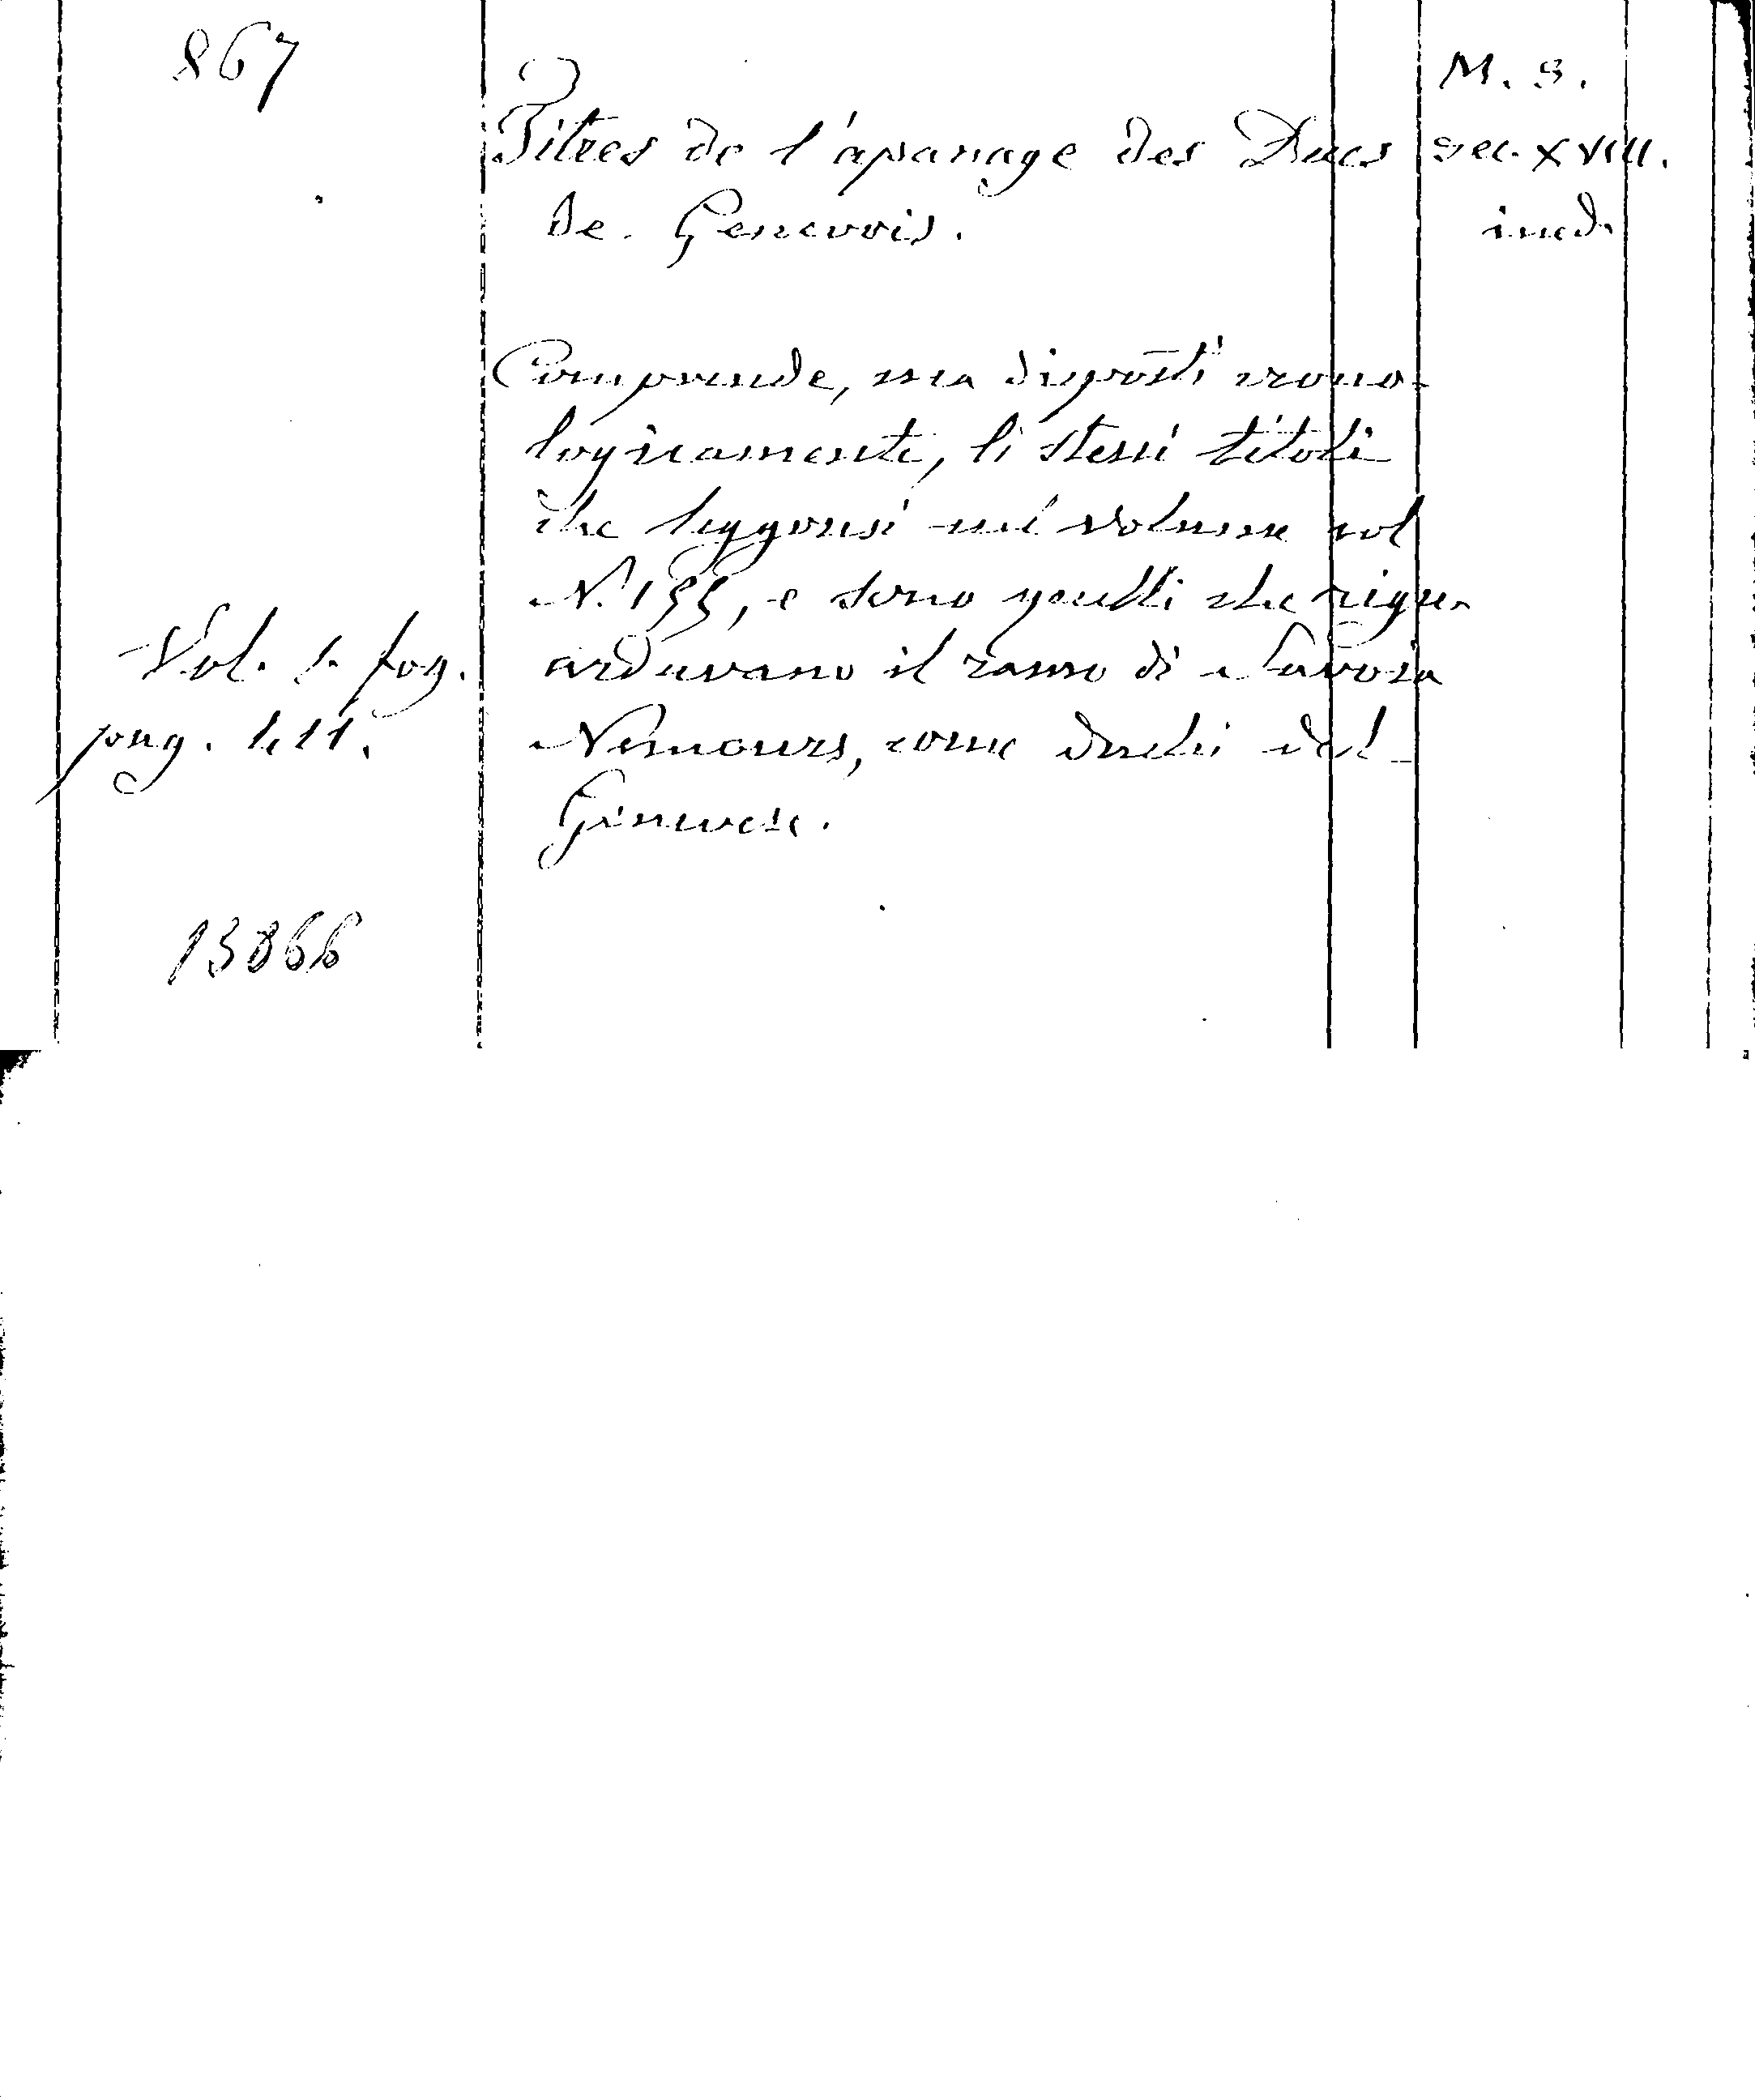 867
M. S.
Titres de l'apanage des Ducs
sec. XVIII.
de Genevois.
ined.
Comprende, ma disposti crono-
logicamente, li stessi titoli
che leggonsi nel volume col
N. 155, e sono quelli che rigu-
ardavano il ramo di Savoia
Vol. 1. fog.
Nemours, come duchi del
pag.
Genevese.
13866